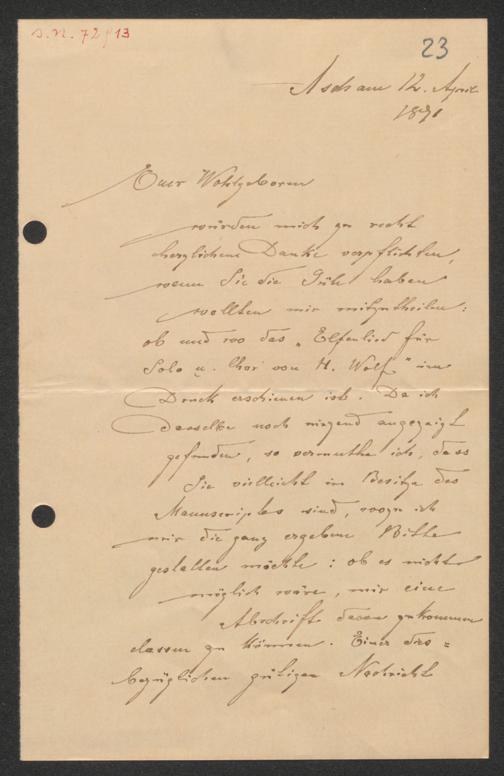 S. N. 72/13
23
Asch am 12. April
1891
Euer Wohlgeboren
würden mich zu recht
herzlichem Danke verpflichten,
wenn Sie die Güte haben
wollten mir mitzutheilen:
ob und wo das „Elfenlied für
Solo u. Chor von H. Wolf" im
Druck erschienen ist. Da ich
dasselbe noch nirgend angezeigt
gefunden, so vermuthe ich, dass
Sie vielleicht im Besitze des
Manuscriptes sind, wozu ich
mir die ganz ergebene Bitte
gestatten möchte: ob es nicht
möglich wäre, mir eine
Abschrift davon zukommen
lassen zu können. Einer dies=
bezüglichen gütigen Nachricht